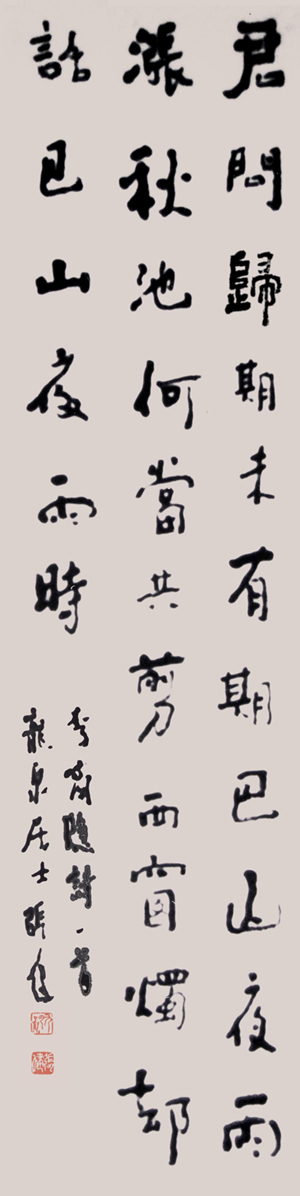 君問歸期未有期巴山夜雨
漲秋池何當共剪西窗燭却
話巴山夜雨時
李商隱詩一首
龍泉居士張